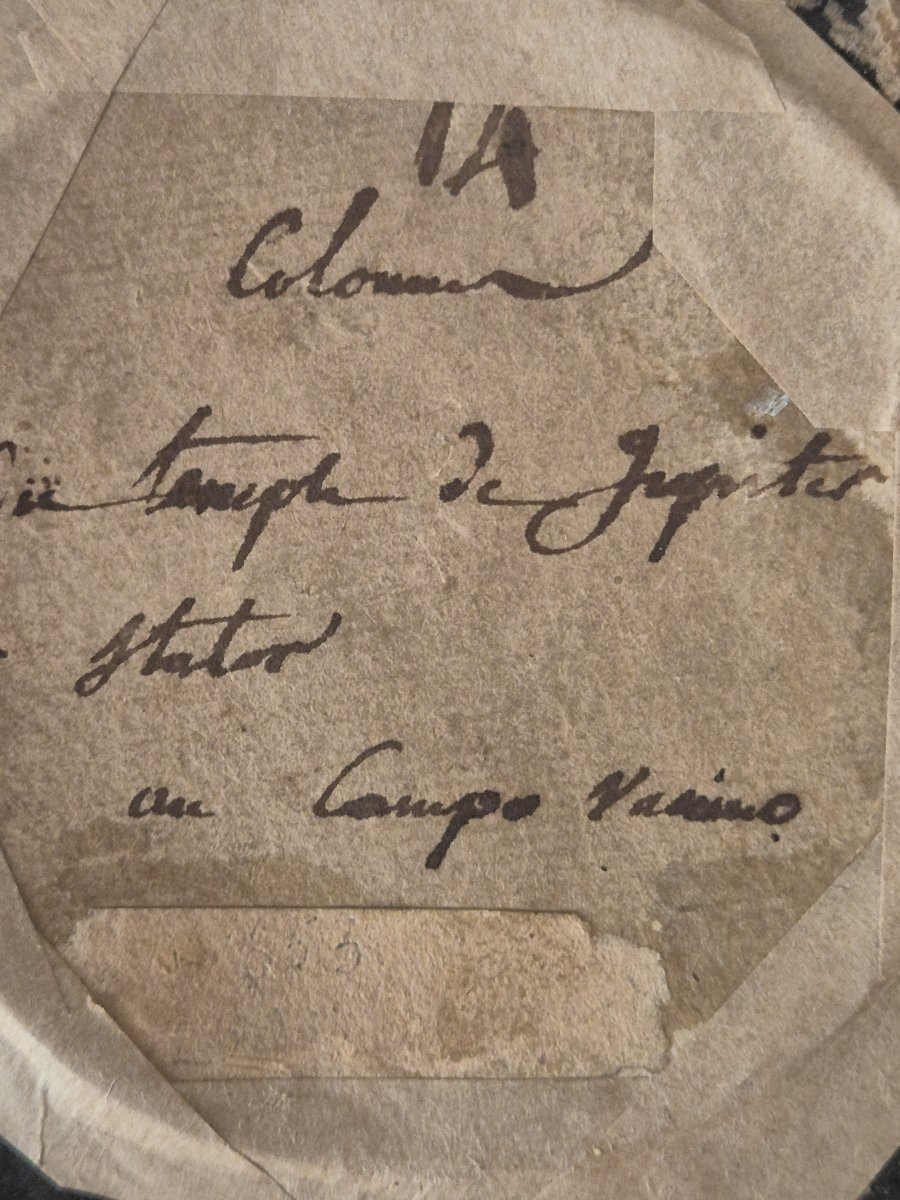 14
Colonne
Du temple de Jupiter
Stator
au Campo Vacino